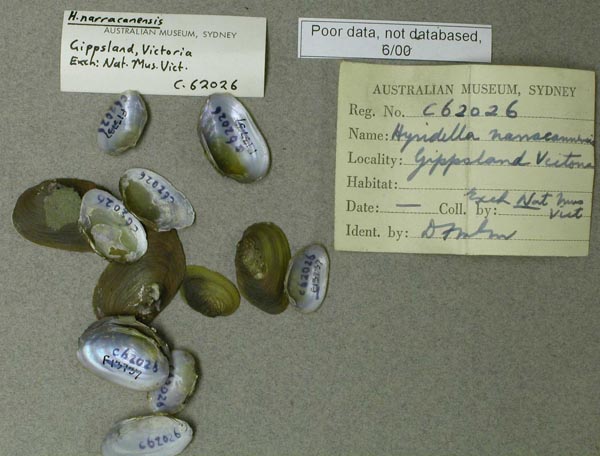 H. narracanensis
AUSTRALIAN MUSEUM, SYDNEY
Gippsland, Victoria
Exch: Nat. Mus. Vict.
C.62026
Poor data, not databased,
6/00
AUSTRALIAN MUSEUM, SYDNEY
Reg. No. C62026
Name: Hyridella narracanensis
Locality: Gippsland Victoria
Habitat:
Date: — Coll. by: Exch Nat Mus
Vict
Ident. by:
C62026
C62026
C62026
C62026
C62026
F13737
C62026
F13737